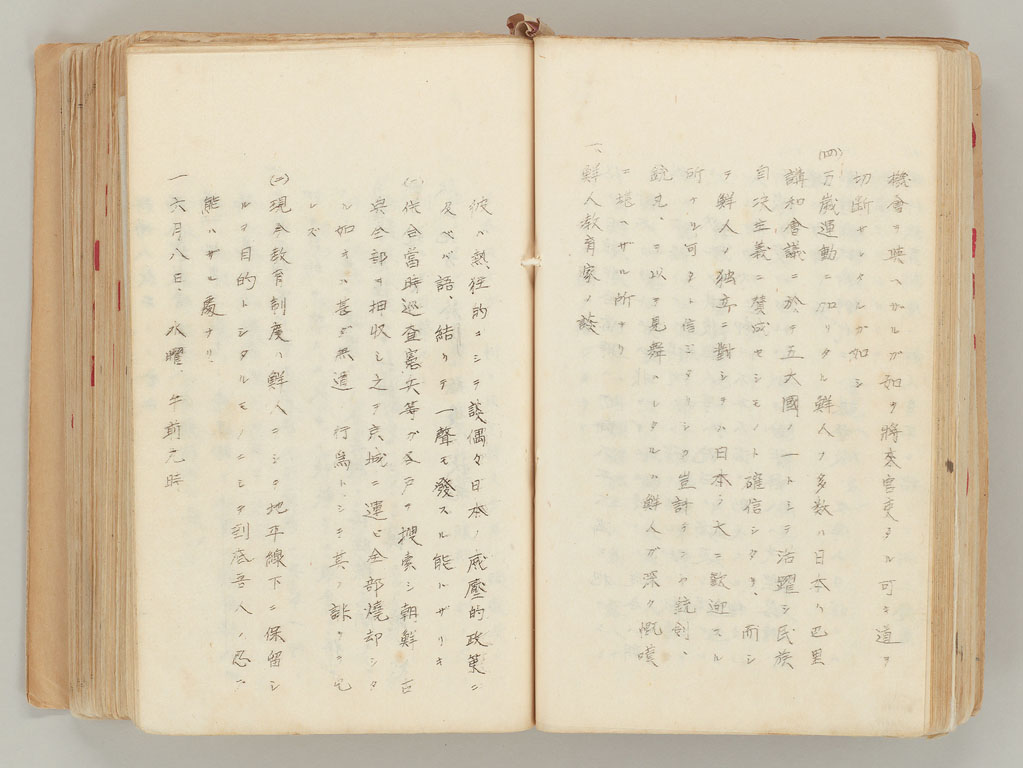 機會ヲ與ヘザルガ如キ將来官吏タル可キ道ヲ
切断サレタルガ如シ
(四)万歳運動ニ加リタル鮮人ノ多数ハ日本ガ巴里
講和會議ニ於テ五大國ノ一トシテ活躍シ民族
自次主義ニ賛成セシモノト確信シタリ、而シ
テ鮮人ノ独立ニ對シテハ日本ノ大ニ歓迎スル
所ナル可シト信ジタリシニ豈計ランヤ銃剣、
銃丸、ヲ以テ見舞ハレタルハ鮮人ガ深ク慨嘆
ニ堪ヘザル所ナリ
一、鮮人教育家ノ談
彼ハ熱狂的ニシテ談偶々日本ノ威壓的政策ニ
及ベバ語、結リテ一聲モ發スル能ハザリキ
(一)併合當時巡査憲兵等ガ各戸ヲ捜索シ朝鮮ノ古
典全部ヲ押収シ之ヲ京城ニ運ビ全部焼却シタ
ル如キハ甚ダ無道ノ行為トシテ其ノ
レズ
(二)現今教育制度ハ鮮人ニシテ地平線下ニ保留シ
ルヲ目的トシタルモノニシテ到底吾人ノ忍ブ
能ハザル處ナリ、
一六月八日、水曜、午前九時